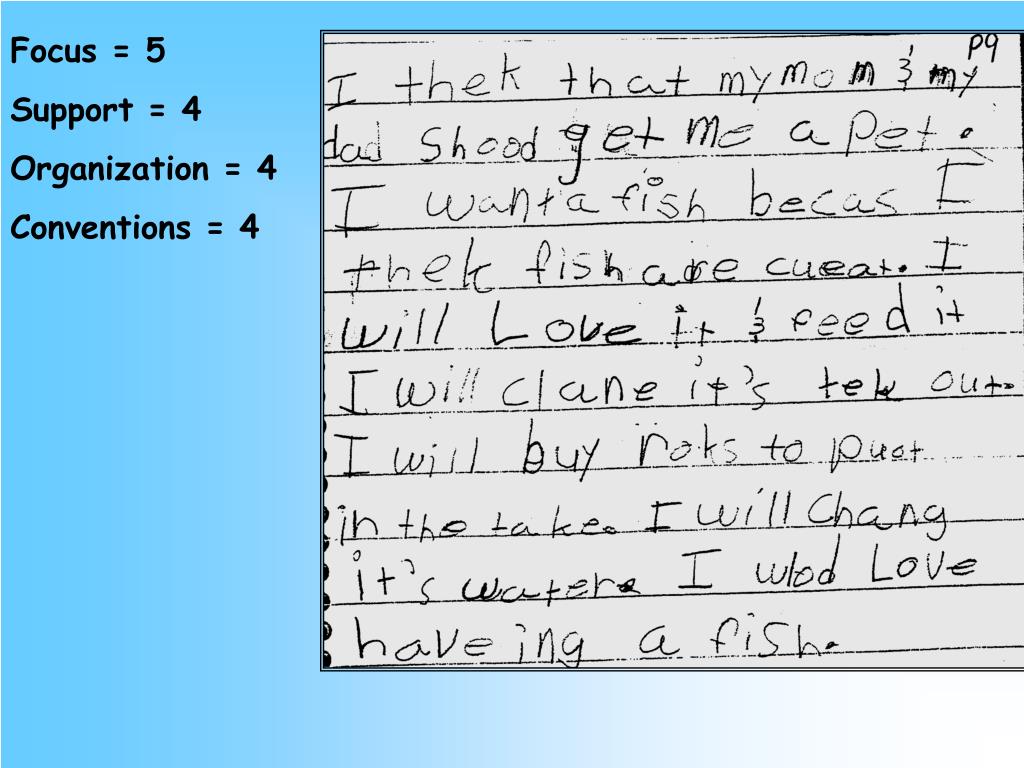 Focus = 5
Support = 4
Organization = 4
Conventions = 4
P9
I thek that my mom & my
dad shood get me a pet.
I want a fish becas I
thek fish are cueat. I
will Love it & feed it
I will clane it's tek out.
I will buy roks to puot
in the take. I will Chang
it's water. I wlod Love
haveing a fish.